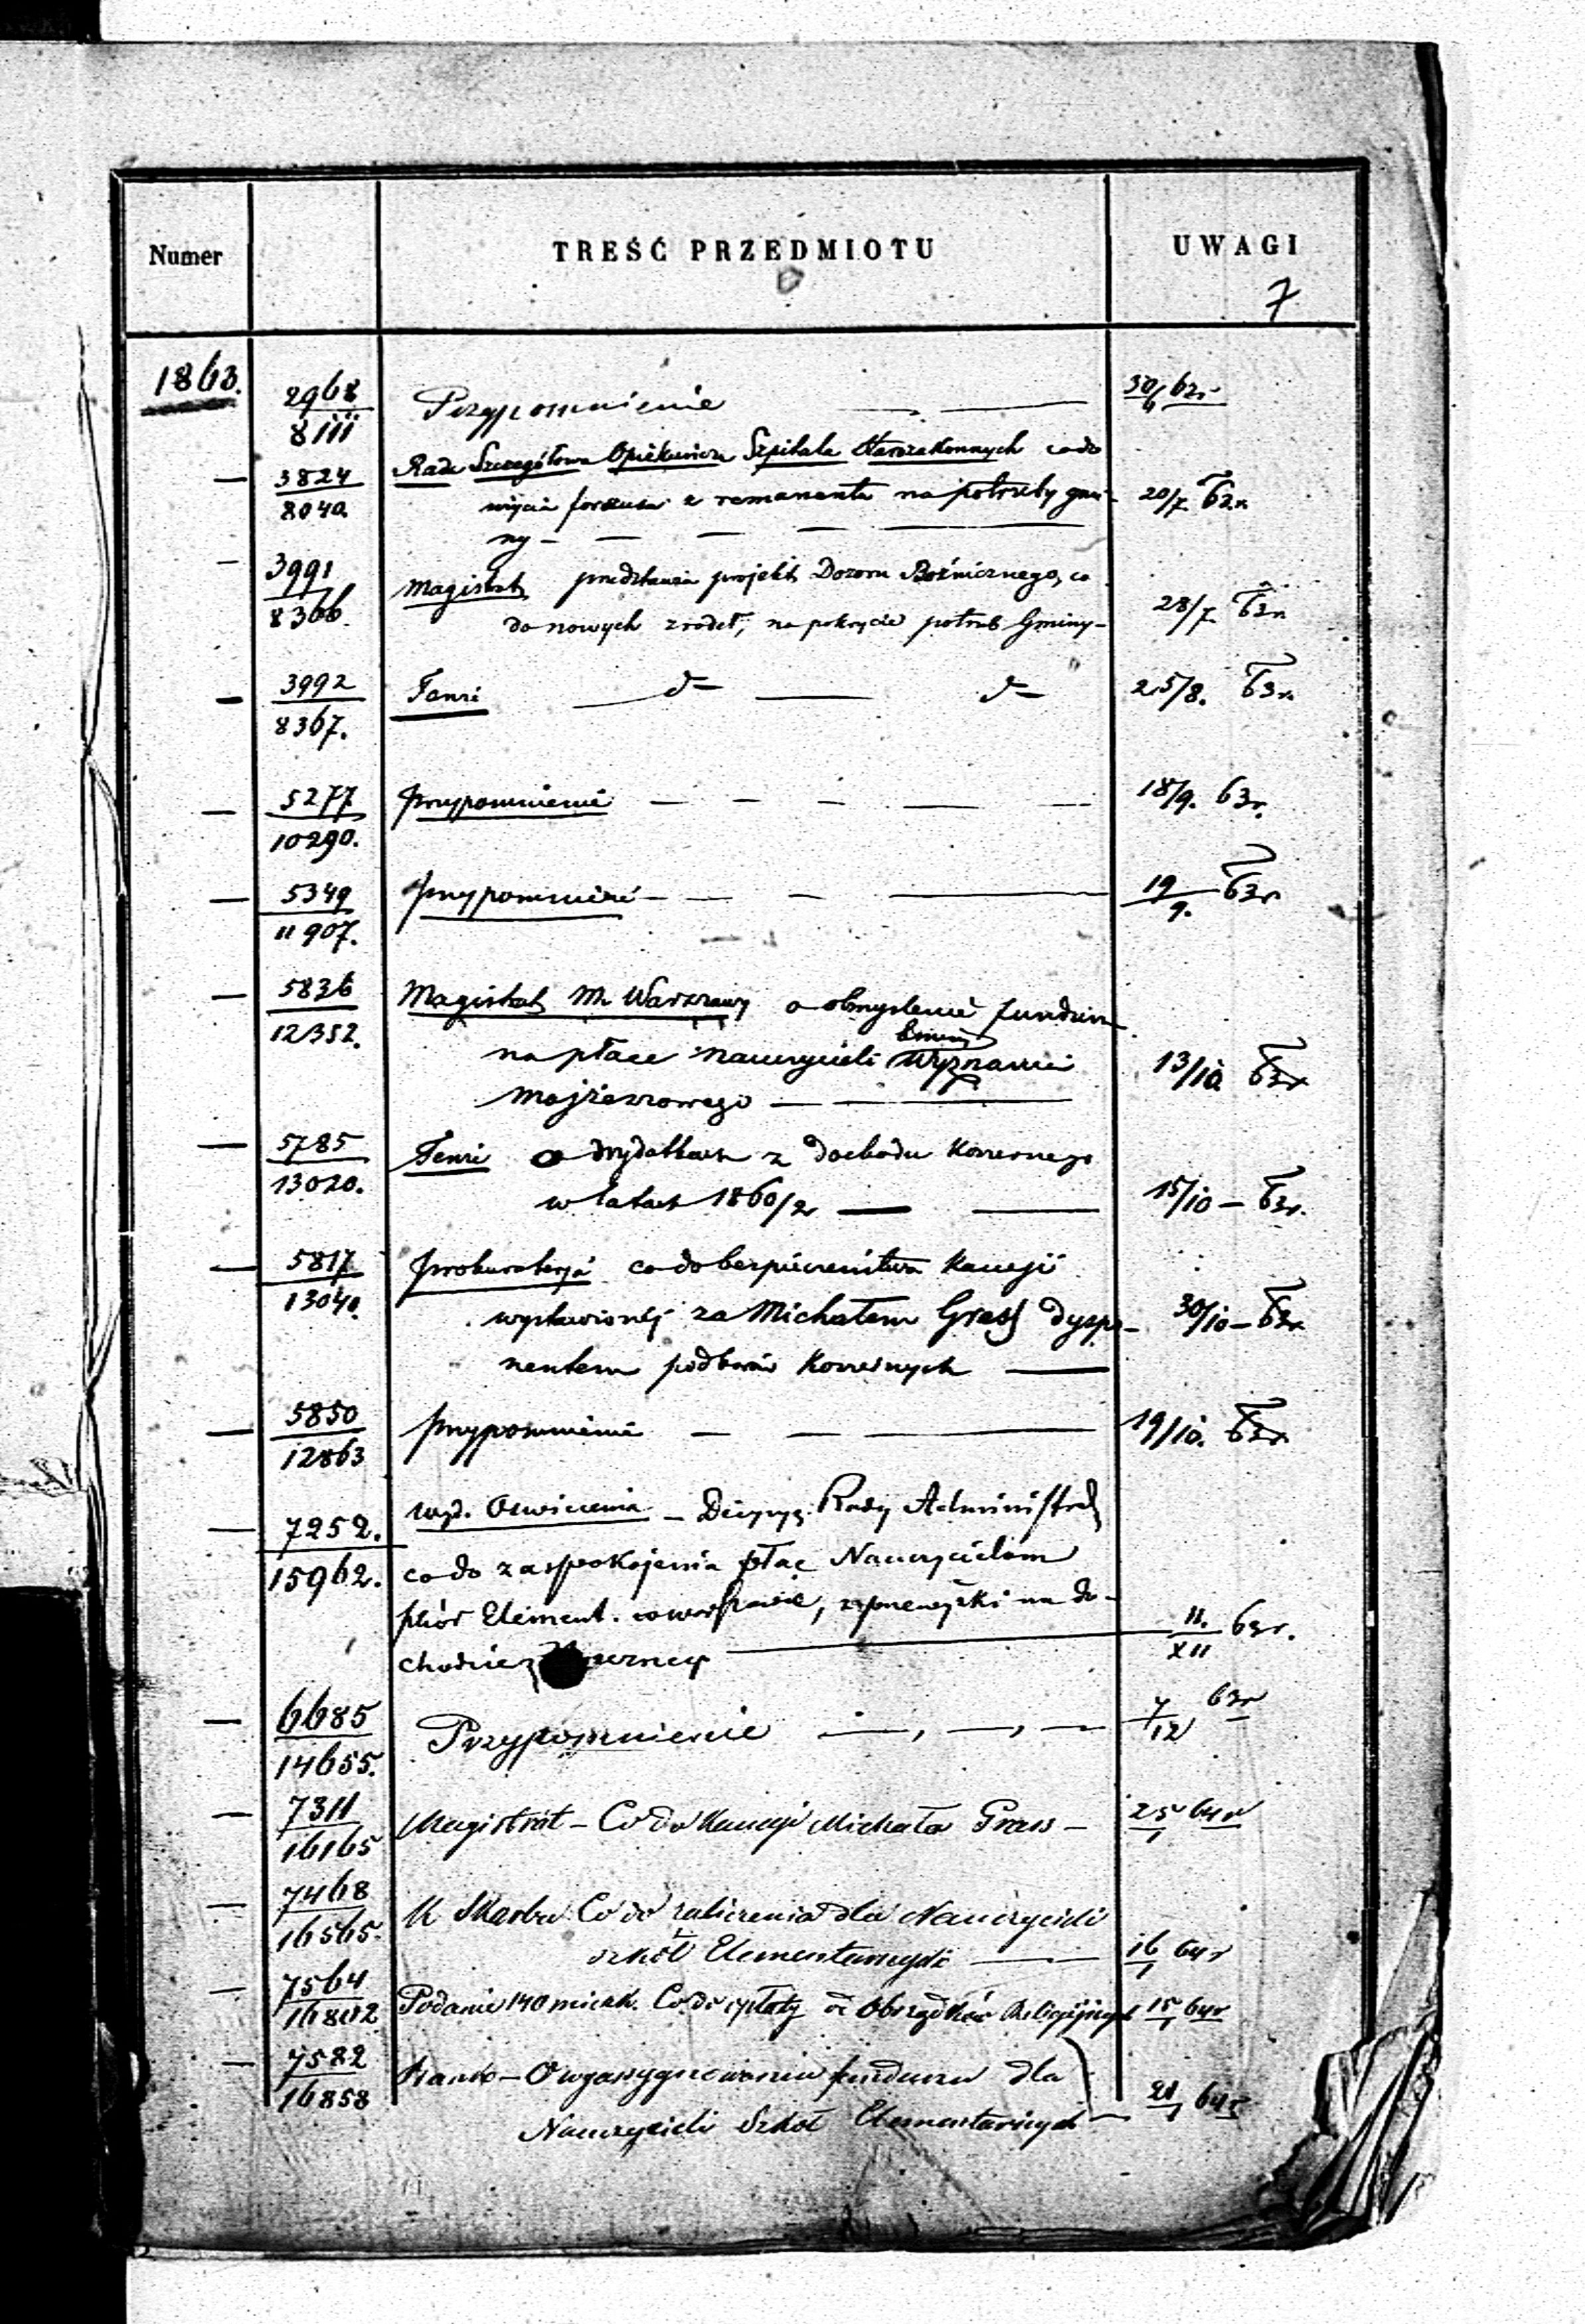 Numer TREŚĆ PRZEDMIOTU UWAGI
7
1863. 2968 Przypomnienie
8111
— 3824 Rada Szczegółowa Opiekuńcza Szpitala Starozakonnych co do
8040 z remanentu na potrzeby gmi- 20/7
ny —
— 3991 Magistrat przedstawia projekt Dozoru Bożniczego, co
8366. do nowych źrodeł, na pokrycie potrzeb Gminy — 28/7 63r
— 3992 Tenże d— d— 25/8. 63r
8367.
— 5277 przypomnienie — 18/9. 63r.
10290.
— 5349 przypomnienie — 19/9. 63r
11907.
— 5836 Magistrat M. Warszawy o obmyślenie funduszu
12352. na płace nauczycieli Wyznania 13/10 63r
mojżeszowego —
— 5785 Tenże o wydatkach z dochodu Koszernego
13020. w latach 1860/2 — 15/10 — 63r.
— 5817 prokuratorja co do bezpieczeństwa Kaucji
13040. wystawionej za Michałem Grass dyspo- 30/10 — 63r
nentem poborów Koszernych —
— 5850 przypomnienie — 19/10. 63r
12863
— 7252. Wyd. Oświecenia — Decyzyą Rady Administrac
15962. co do zaspokojenia płac Nauczycielom
szkół Element. w Warszawie, z przewyżki na do- 11./XII 63r.
chodzie
— 6685 Przypomnienie — 7/12 63r
14655.
— 7311 Magistrat — Co do Kaucyi Michała Grass — 25/1 64r
16165
— 7468 K Skarbu Co do zaliczenia dla Nauczycieli
16565. szkół Elementarnych — 16/1 64r
— 7564 Podanie 140 mieszk. Co do opłaty od Obrzędków Religijnych 15/1 64r
16802
— 7582 — O wyasygnowanie funduszu dla
16858 Nauczycieli Szkół Elementarnych — 21/1 64r